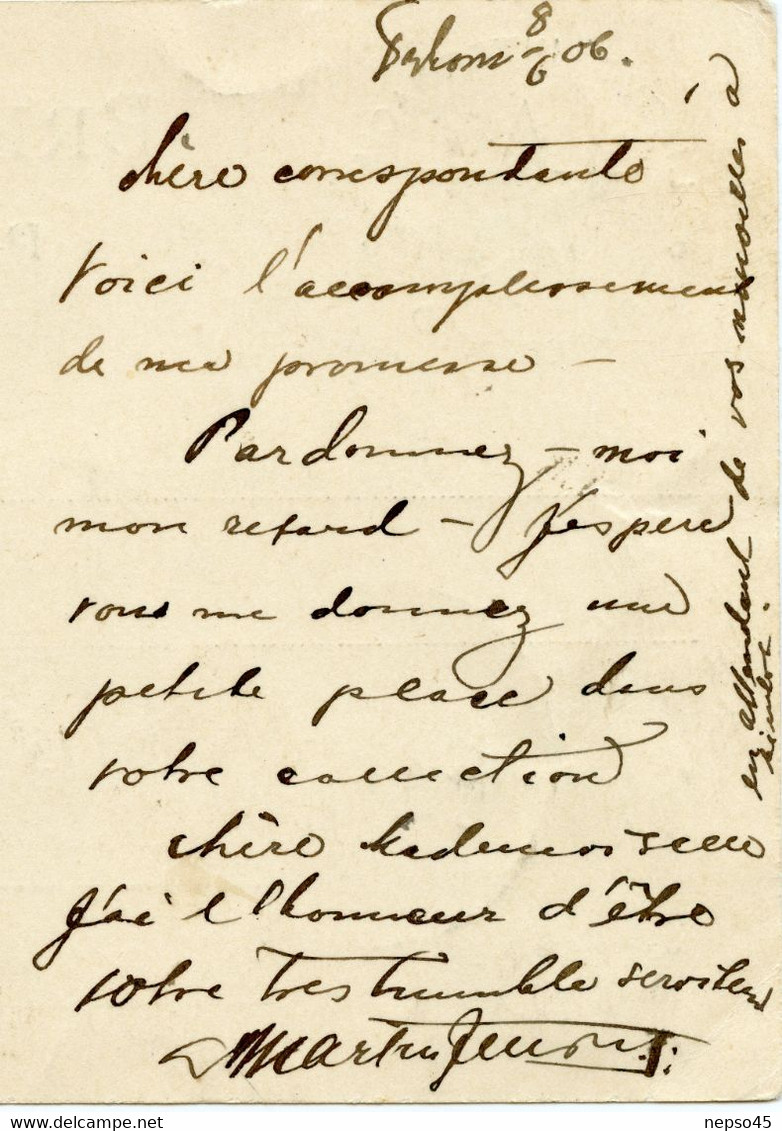 8/6 06.
chère correspondante
Voici l'accomplissement
de ma promesse –
Pardonnez-moi
mon retard – J'espere
vous me donnez une
petite place dans
votre collection
chère Mademoiselle
J'ai l'honneur d'être
votre tres humble serviteur
Martin
en attendant de vos nouvelles à
nepso45